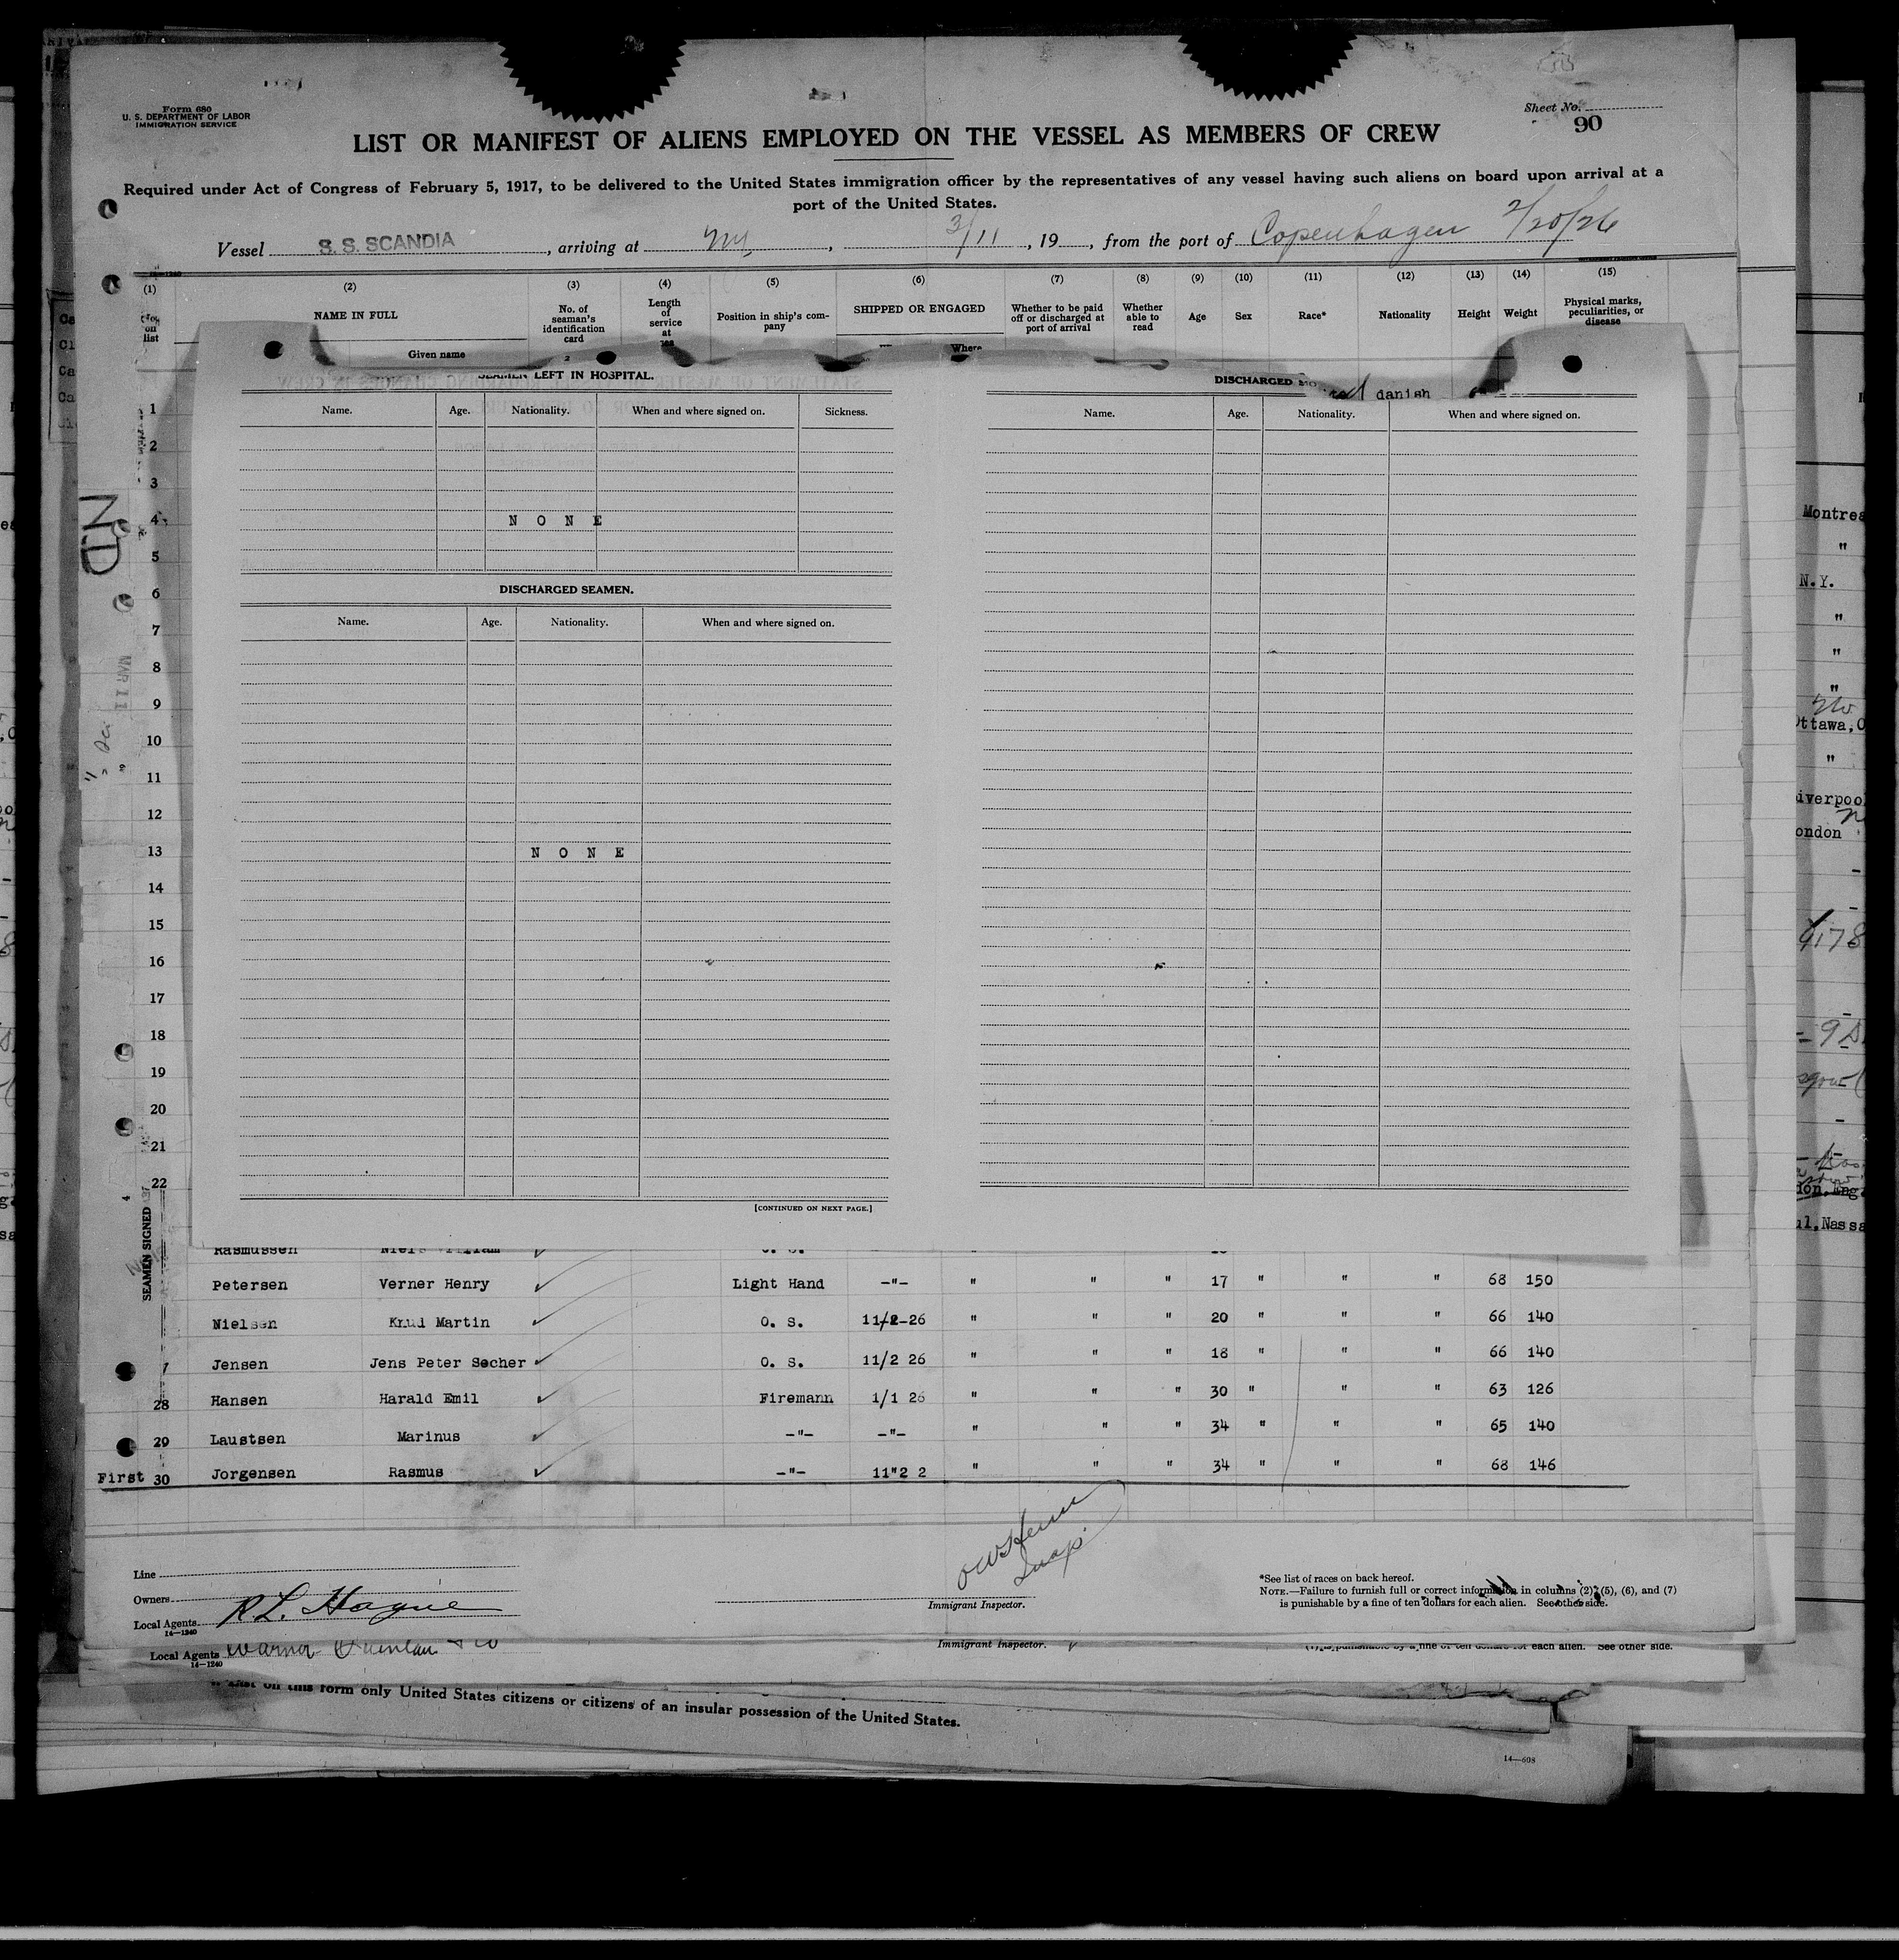 Form 680
U. S. DEPARTMENT OF LABOR
IMMIGRATION SERVICE
Sheet No.
90
LIST OR MANIFEST OF ALIENS EMPLOYED ON THE VESSEL AS MEMBERS OF CREW
Required under Act of Congress of February 5, 1917, to be delivered to the United States immigration officer by the representatives of any vessel having such aliens on board upon arrival at a
port of the United States.
Vessel S. S. SCANDIA, arriving at NY, 3/11, 19, from the port of Copenhagen 2/20/26
(1) (2) (3) (4) (5) (6) (7) (8) (9) (10) (11) (12) (13) (14) (15)
No. on list
NAME IN FULL
Given name
No. of seaman's identification card
Length of service at
Position in ship's company
SHIPPED OR ENGAGED
Where
Whether to be paid off or discharged at port of arrival
Whether able to read
Age
Sex
Race*
Nationality
Height
Weight
Physical marks, peculiarities, or disease
danish
SEAMEN LEFT IN HOSPITAL.
Name. Age. Nationality. When and where signed on. Sickness.
NONE
DISCHARGED SEAMEN.
Name. Age. Nationality. When and where signed on.
NONE
[CONTINUED ON NEXT PAGE.]
DISCHARGED
Name. Age. Nationality. When and where signed on.
1
2
3
4
5
6
7
8
9
10
11
12
13
14
15
16
17
18
19
20
21
22
ND
MAR 11
SEAMEN SIGNED
Rasmussen Niels William
Petersen Verner Henry Light Hand -"- " " " 17 " " " 68 150
Nielsen Knud Martin O. S. 11/2-26 " " " 20 " " " 66 140
Jensen Jens Peter Secher O. S. 11/2 26 " " " 18 " " " 66 140
28 Hansen Harald Emil Firemann 1/1 26 " " " 30 " " " 63 126
29 Laustsen Marinus -"- -"- " " " 34 " " " 65 140
First 30 Jorgensen Rasmus -"- 11"2 2 " " " 34 " " " 68 146
Line
Owners
Local Agents R L. Hague
14—1240
Immigrant Inspector.
*See list of races on back hereof.
NOTE.—Failure to furnish full or correct information in columns (2), (5), (6), and (7)
is punishable by a fine of ten dollars for each alien. See other side.
Local Agents Warner Quinlan + Co
14—1240
Immigrant Inspector.
each alien. See other side.
on this form only United States citizens or citizens of an insular possession of the United States.
14—608
Montrea
"
N.Y.
"
"
"
Ottawa,
"
Liverpool
London
Nassa